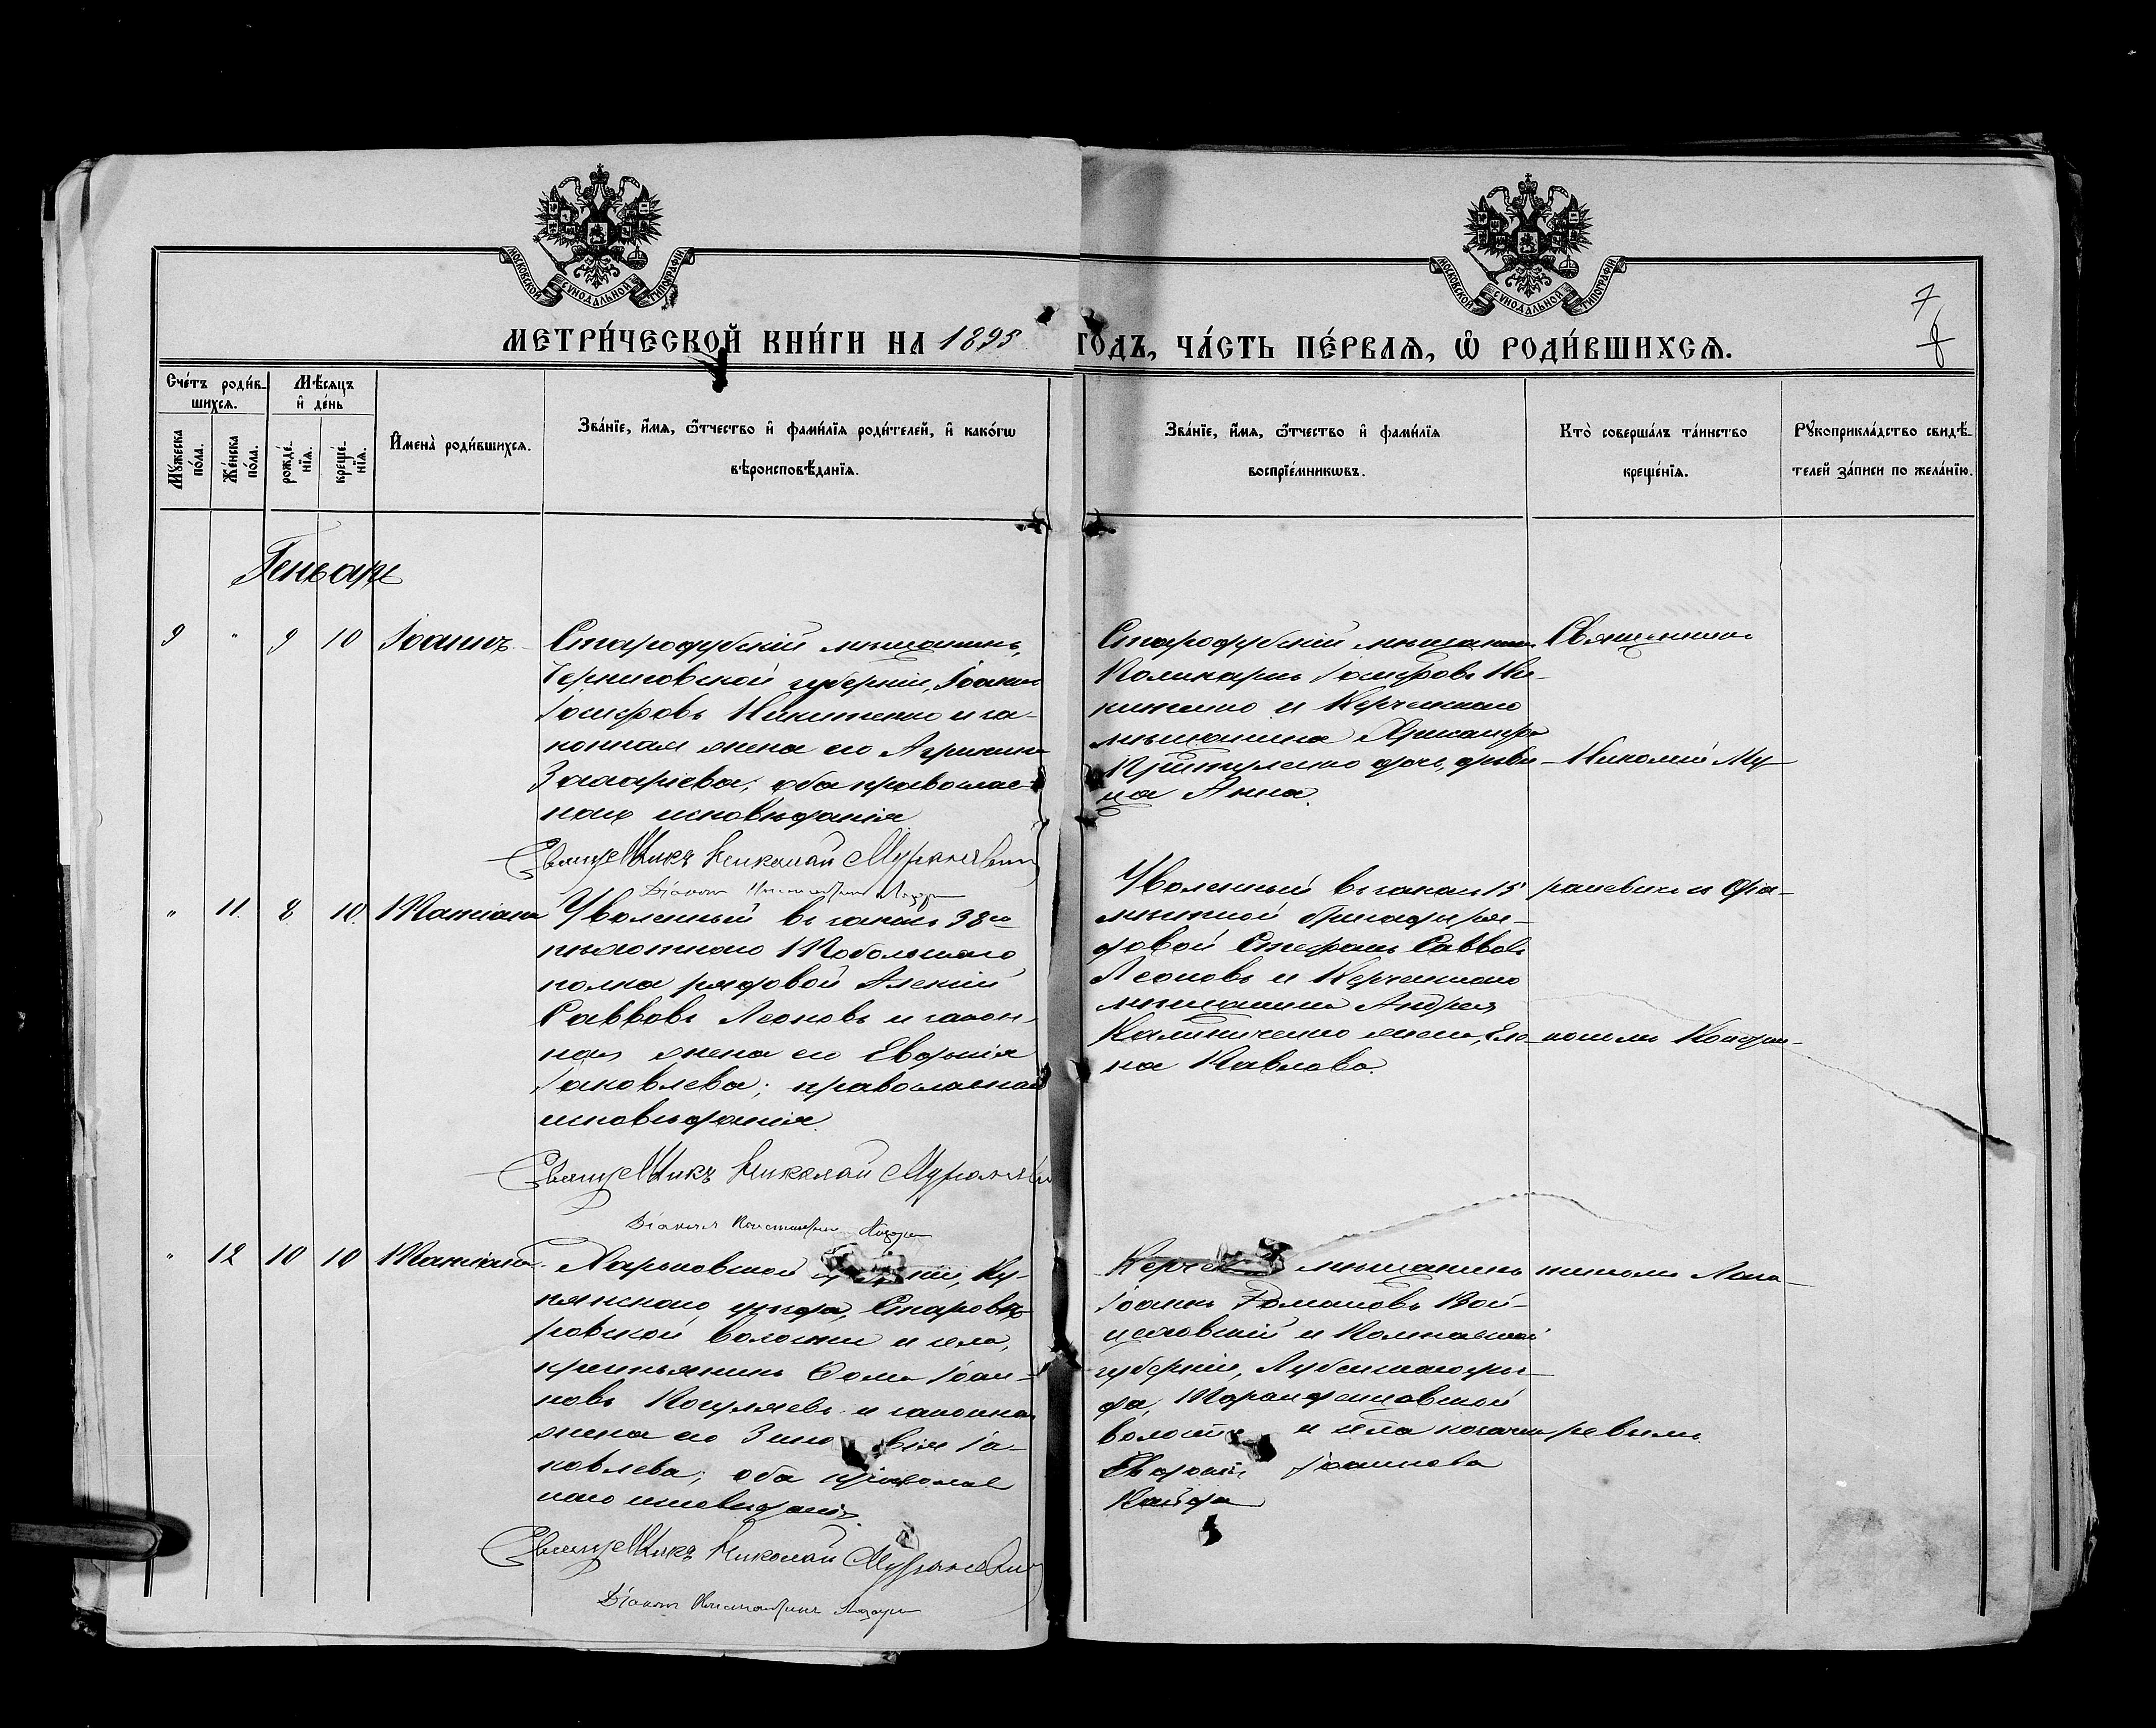 МОСКОВСКОЙ СУНОДАЛЬНОЙ ТИПОГРАФІИ
МОСКОВСКОЙ СУНОДАЛЬНОЙ ТИПОГРАФІИ
7
8
МЕТРИ́ЧЕСКОЙ КНИ́ГИ НА 1895 ГО́ДЪ, ЧА́СТЬ ПЕ́РВАѦ, Ѽ РОДИ́ВШИХСѦ.
Сче́тъ роди́в-
шихсѧ.
Мѣ́сѧцъ
и҆ де́нь
Мꙋ́жеска
по́ла.
Же́нска
по́ла.
рожде́-
нїѧ.
креще́-
нїѧ.
И҆мена̀ роди́вшихсѧ.
Зва́нїе, и҆́мѧ, ѻ҆́тчество и҆ фами́лїѧ роди́телей, и҆ како́гѡ
вѣроисповѣ́данїѧ.
Зва́нїе, и҆́мѧ, ѻ҆́тчество и҆ фами́лїѧ
воспрїе́мникѡвъ.
Кто̀ соверша́лъ та́инство
креще́нїѧ.
Рꙋкоприкла́дство свидѣ́-
телей за́писи по жела́нїю.
Геньварь
9 " 9 10 Іоаннъ
Стародубскій мѣщанинъ,
Черниговской губерніи, Іоаннъ
Іосифовъ Никитенко и за-
конная жена его Агрипина
Захаріева; оба православ-
наго исповѣданія
Священникъ Николай Мураневичъ
Діаконъ Константинъ
Стародубскій мѣщанинъ
Поликарпъ Іосифовъ Ни-
китенко и Керченскаго
мѣщанина Хрисанфа
Притуленко дочь, дѣви-
ца Анна.
Священникъ
Николай Му-
" 11 8 10 Татіана
Уволенный въ запасъ 38го
пѣхотнаго Тобольскаго
полка рядовой Алексій
Саввовъ Леоновъ и закон-
ная жена его Евдокія
Іаковлева; православнаго
исповѣданія.
Священникъ Николай Мураневичъ
Діаконъ Константинъ
Уволенный въ запасъ 15
рядовой Стефанъ Саввовъ
Леоновъ и Керченскаго
мѣщанина Андрея
Калиниченко жена, Еле-
на Павлова.
раневичъ съ діа-
кономъ Констан-
" 12 10 10 Татіана
Харьковской губерніи, Ку-
пянскаго уѣзда, Старовѣ-
ровской волости и села,
крестьянинъ Ѳома Іоан-
новъ и законная
жена его Зиновія Іа-
ковлева; оба православ
наго исповѣданія.
Священникъ Николай Мураневичъ
Діаконъ Константинъ
Керченскій мѣщанинъ
Іоаннъ Романовъ Вой-
цеховскій и Полтавской
губерніи, Лубенскаго уѣз-
да,
волости и села козачка
Іоаннова
тиномъ Лаза-
ревымъ.